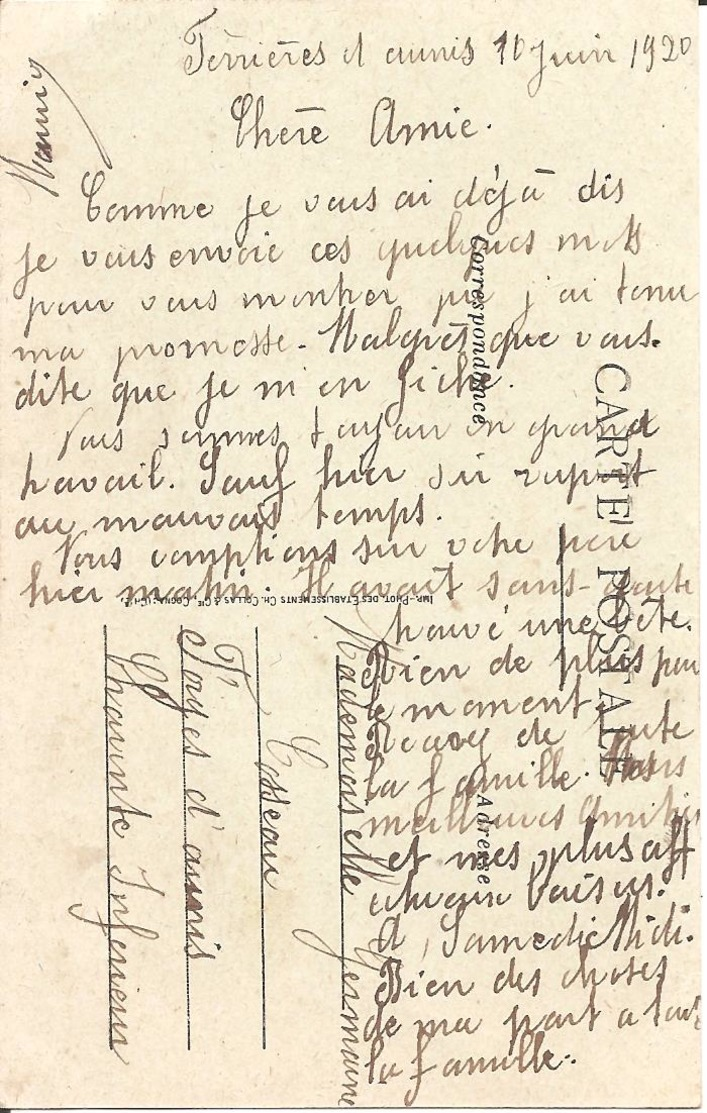 Ferrières d aunis 10 Juin 1920
Chere Amie.
Comme je vous ai déjà dis
je vous envoie ces quelques mots
pour vous montrer que j'ai tenu
ma promesse. Malgrés que vous
dite que je m'en fiche.
Nous sommes toujour en grand
travail. Sauf hier
au mauvais temps.
Nous comptions sur votre pere
hier matin. Il avait sans-doute
trouvé une
Rien de plus pour
le moment.
Recevez de toute
la famille. Nos
meilleures amitiés
et mes plus aff
ctueux baisers.
A Samedi Midi.
Bien des choses
de ma part a toute
la famille.
CARTE POSTALE
Correspondance
Adresse
Mademoiselle Germaine
Forges d'aunis
Charente Inferieur
IMP.-PHOT. DES ETABLISSEMENTS CH. COLLAS & CIE, COGNAC